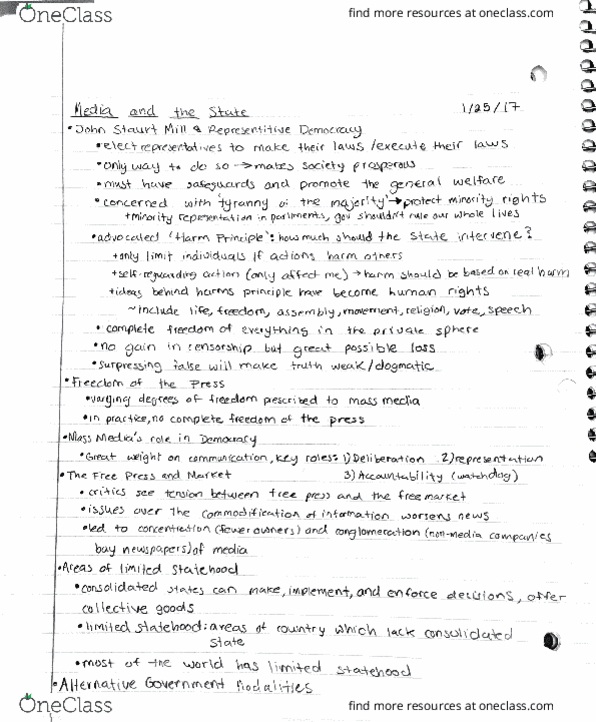 OneClass
find more resources at oneclass.com
Media and the State 1/25/17
• John Staurt Mill & Representitive Democracy
• elect representatives to make their laws /execute their laws
• only way to do so → makes society prosperous
• must have safeguards and promote the general welfare
• concerned with 'tyranny of the majority' → protect minority rights
+ minority representation in parliments, gov shouldn't rule our whole lives
• advocated 'Harm Principle': how much should the state intervene?
+ only limit individuals if actions harm others
+ self-reguarding action (only affect me) → harm should be based on real harm
+ ideas behind harms principle have become human rights
~ include life, freedom, assembly, movement, religion, vote, speech
• complete freedom of everything in the private sphere
• no gain in censorship but great possible loss
• surpressing false will make truth weak/dogmatic
• Freedom of the Press
• varging degrees of freedom pescribed to mass media
• in practice, no complete freedom of the press
• Mass Media's role in Democracy
• Great weight on communication, key roles: 1) Deliberation 2) representation
• The Free Press and Market 3) Accountability (watchdog)
• critics see tension between free press and the free market
• issues over the commodification of information worsens news
• led to concentration (fewer owners) and conglomeration (non-media companies
buy newspapers) of media
• Areas of limited Statehood
• consolidated states can make, implement, and enforce decisions, offer
collective goods
• limited statehood: areas of country which lack consolidated
state
• most of the world has limited statehood
• Alternative Government Modalities
OneClass
find more resources at oneclass.com